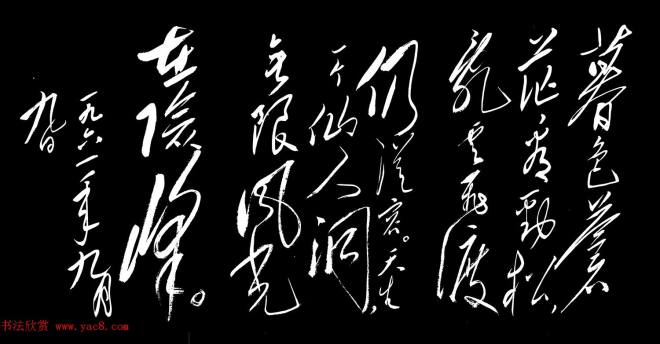 暮色苍
茫看劲松,
乱云飞渡
仍从容。天生
一个仙人洞,
无限风光
在险峰。
一九六一年九月
九日
书法欣赏 www.yac8.com